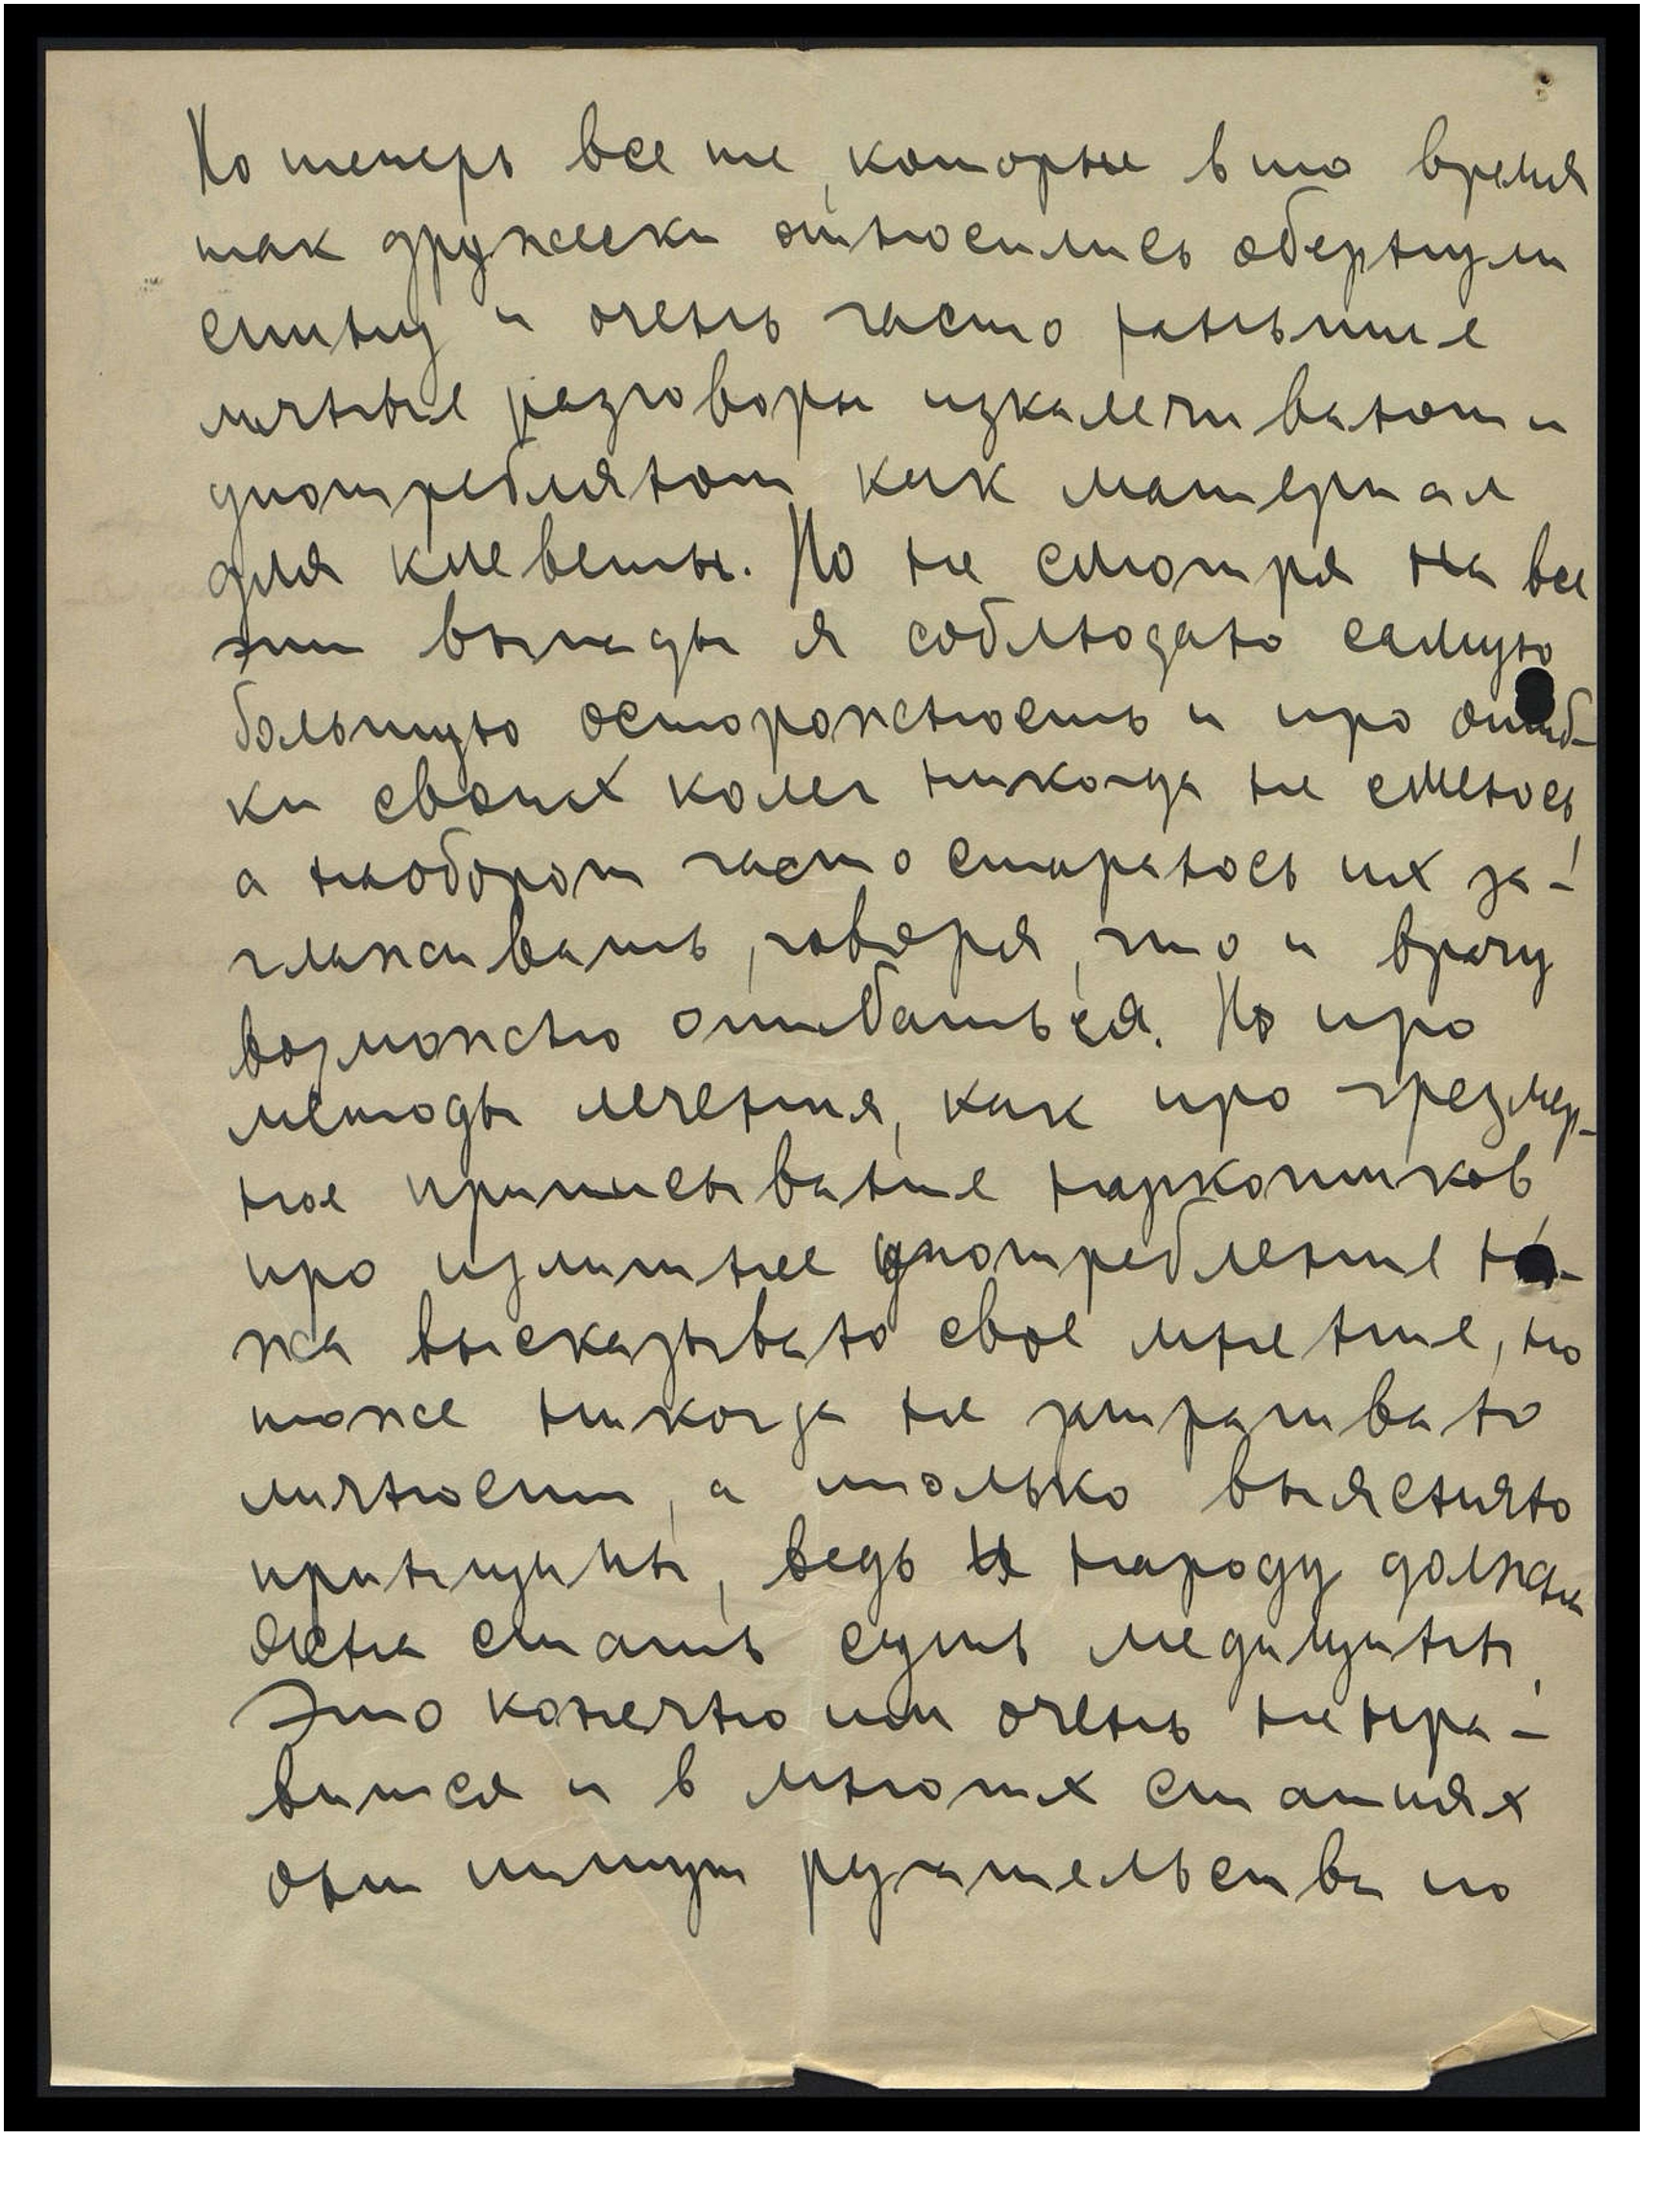 Но теперь все те, которые в то время
так дружески относились обернули
спину и очень часто раньше
личные разговоры изкалечивают и
употребляют как материал
для клеветы. Но не смотря на все
эти выпады я соблюдаю самую
большую осторожность и про ошиб-
ки своих колег никогда не смеюсь,
а наоборот часто стараюсь их за-
глаживать, говоря, что и врачу
возможно ошибаться. Но про
методы лечения, как про чрезмер-
ное приписывание наркотиков,
про излишнее употребление но-
жа высказываю свое мнение, но
тоже никогда не затрагиваю
личности, а только выясняю
принципы, ведь народу должна
ясна стать суть медицины.
Это конечно им очень не нра-
вится и в многих статиях
они пишут ругательства по